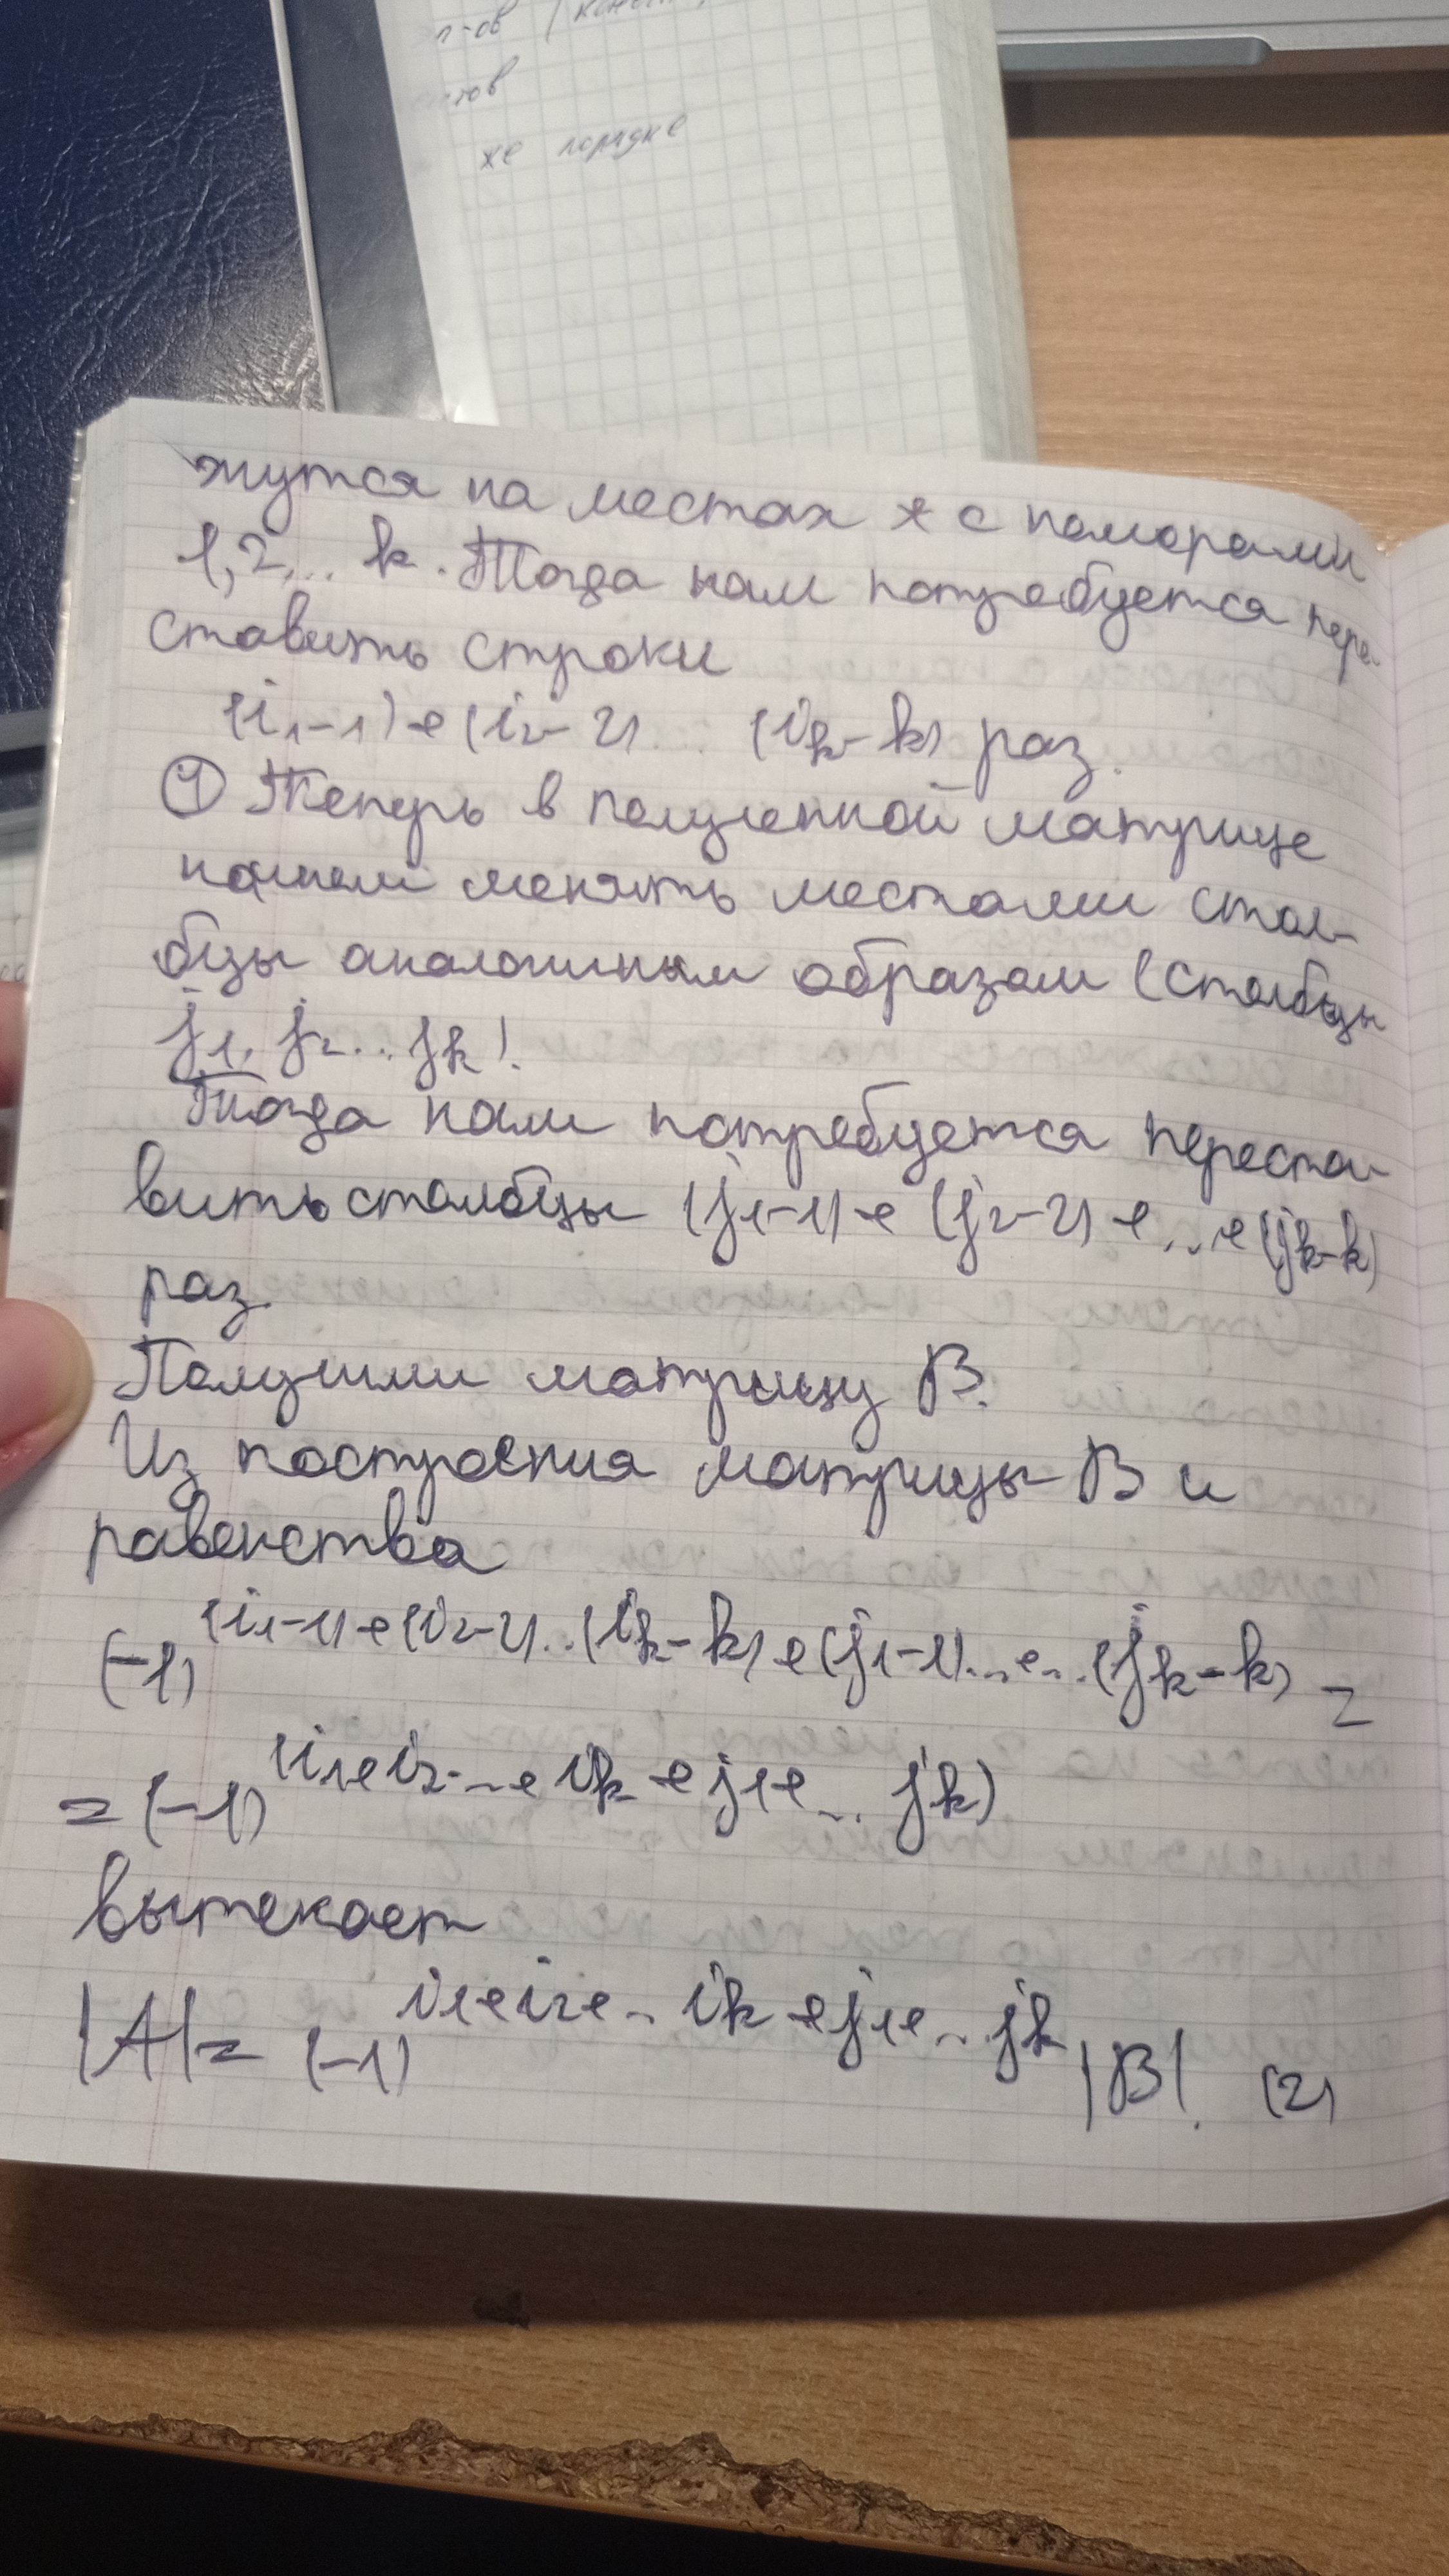 л-ов
-тов
же порядке
жутся на местах с номерами
1, 2, ... k. Тогда нам потребуется пере-
ставить строки
(i₁-1)+(i₂-2)... (iₖ-k) раз.
④ Теперь в полученной матрице
начнем менять местами стол-
бцы аналогичным образом (столбцы
j₁, j₂... jₖ).
Тогда нам потребуется переста-
вить столбцы (j₁-1)+(j₂-2)+...+(jₖ-k)
раз.
Получили матрицу B.
Из построения матрицы B и
равенства
(-1)^(i₁-1)+(i₂-2)...(iₖ-k)+(j₁-1)...+...(jₖ-k) =
= (-1)^(i₁+i₂...+iₖ+j₁+... jₖ)
вытекает
|A| = (-1)^i₁+i₂+... iₖ+j₁+... jₖ |B|. (2)